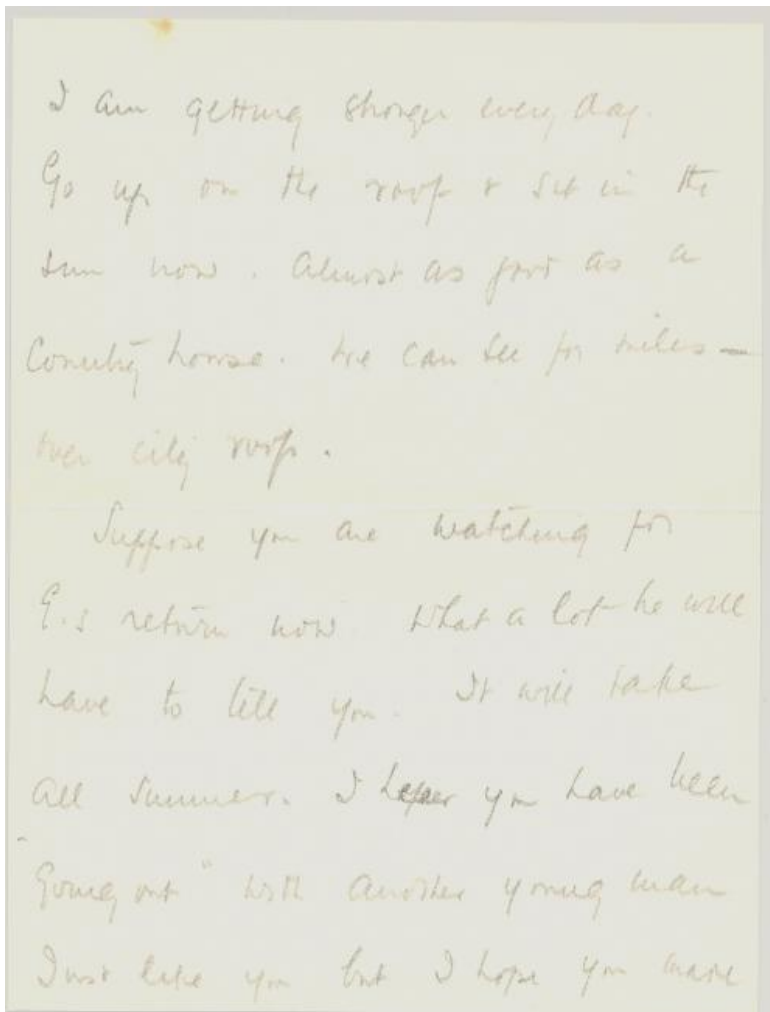 I am getting stronger every day.
Go up on the roof & sit in the
sun now. Almost as good as a
Country house. We can see for miles —
over city roofs.
Suppose you are watching for
G.s return now. What a lot he will
have to tell you. It will take
all summer. I hear you have been
"going out" with another young man
Just like you but I hope you